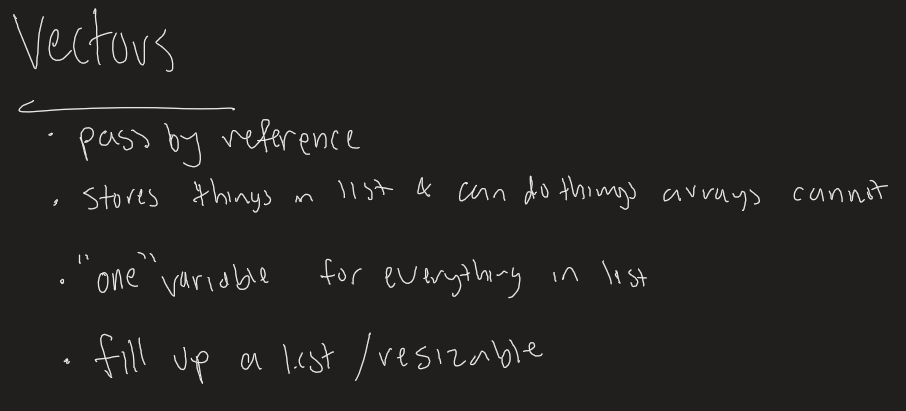 Vectors
• pass by reference
• stores things in list & can do things arrays cannot
• "one" variable for everything in list
• fill up a list / resizable